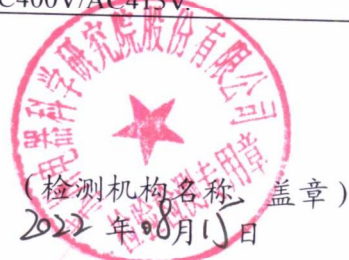 C400V/AC415V.
电器科学研究院股份有限公司
检验检测专用章
(检测机构名称、盖章)
2022年08月15日